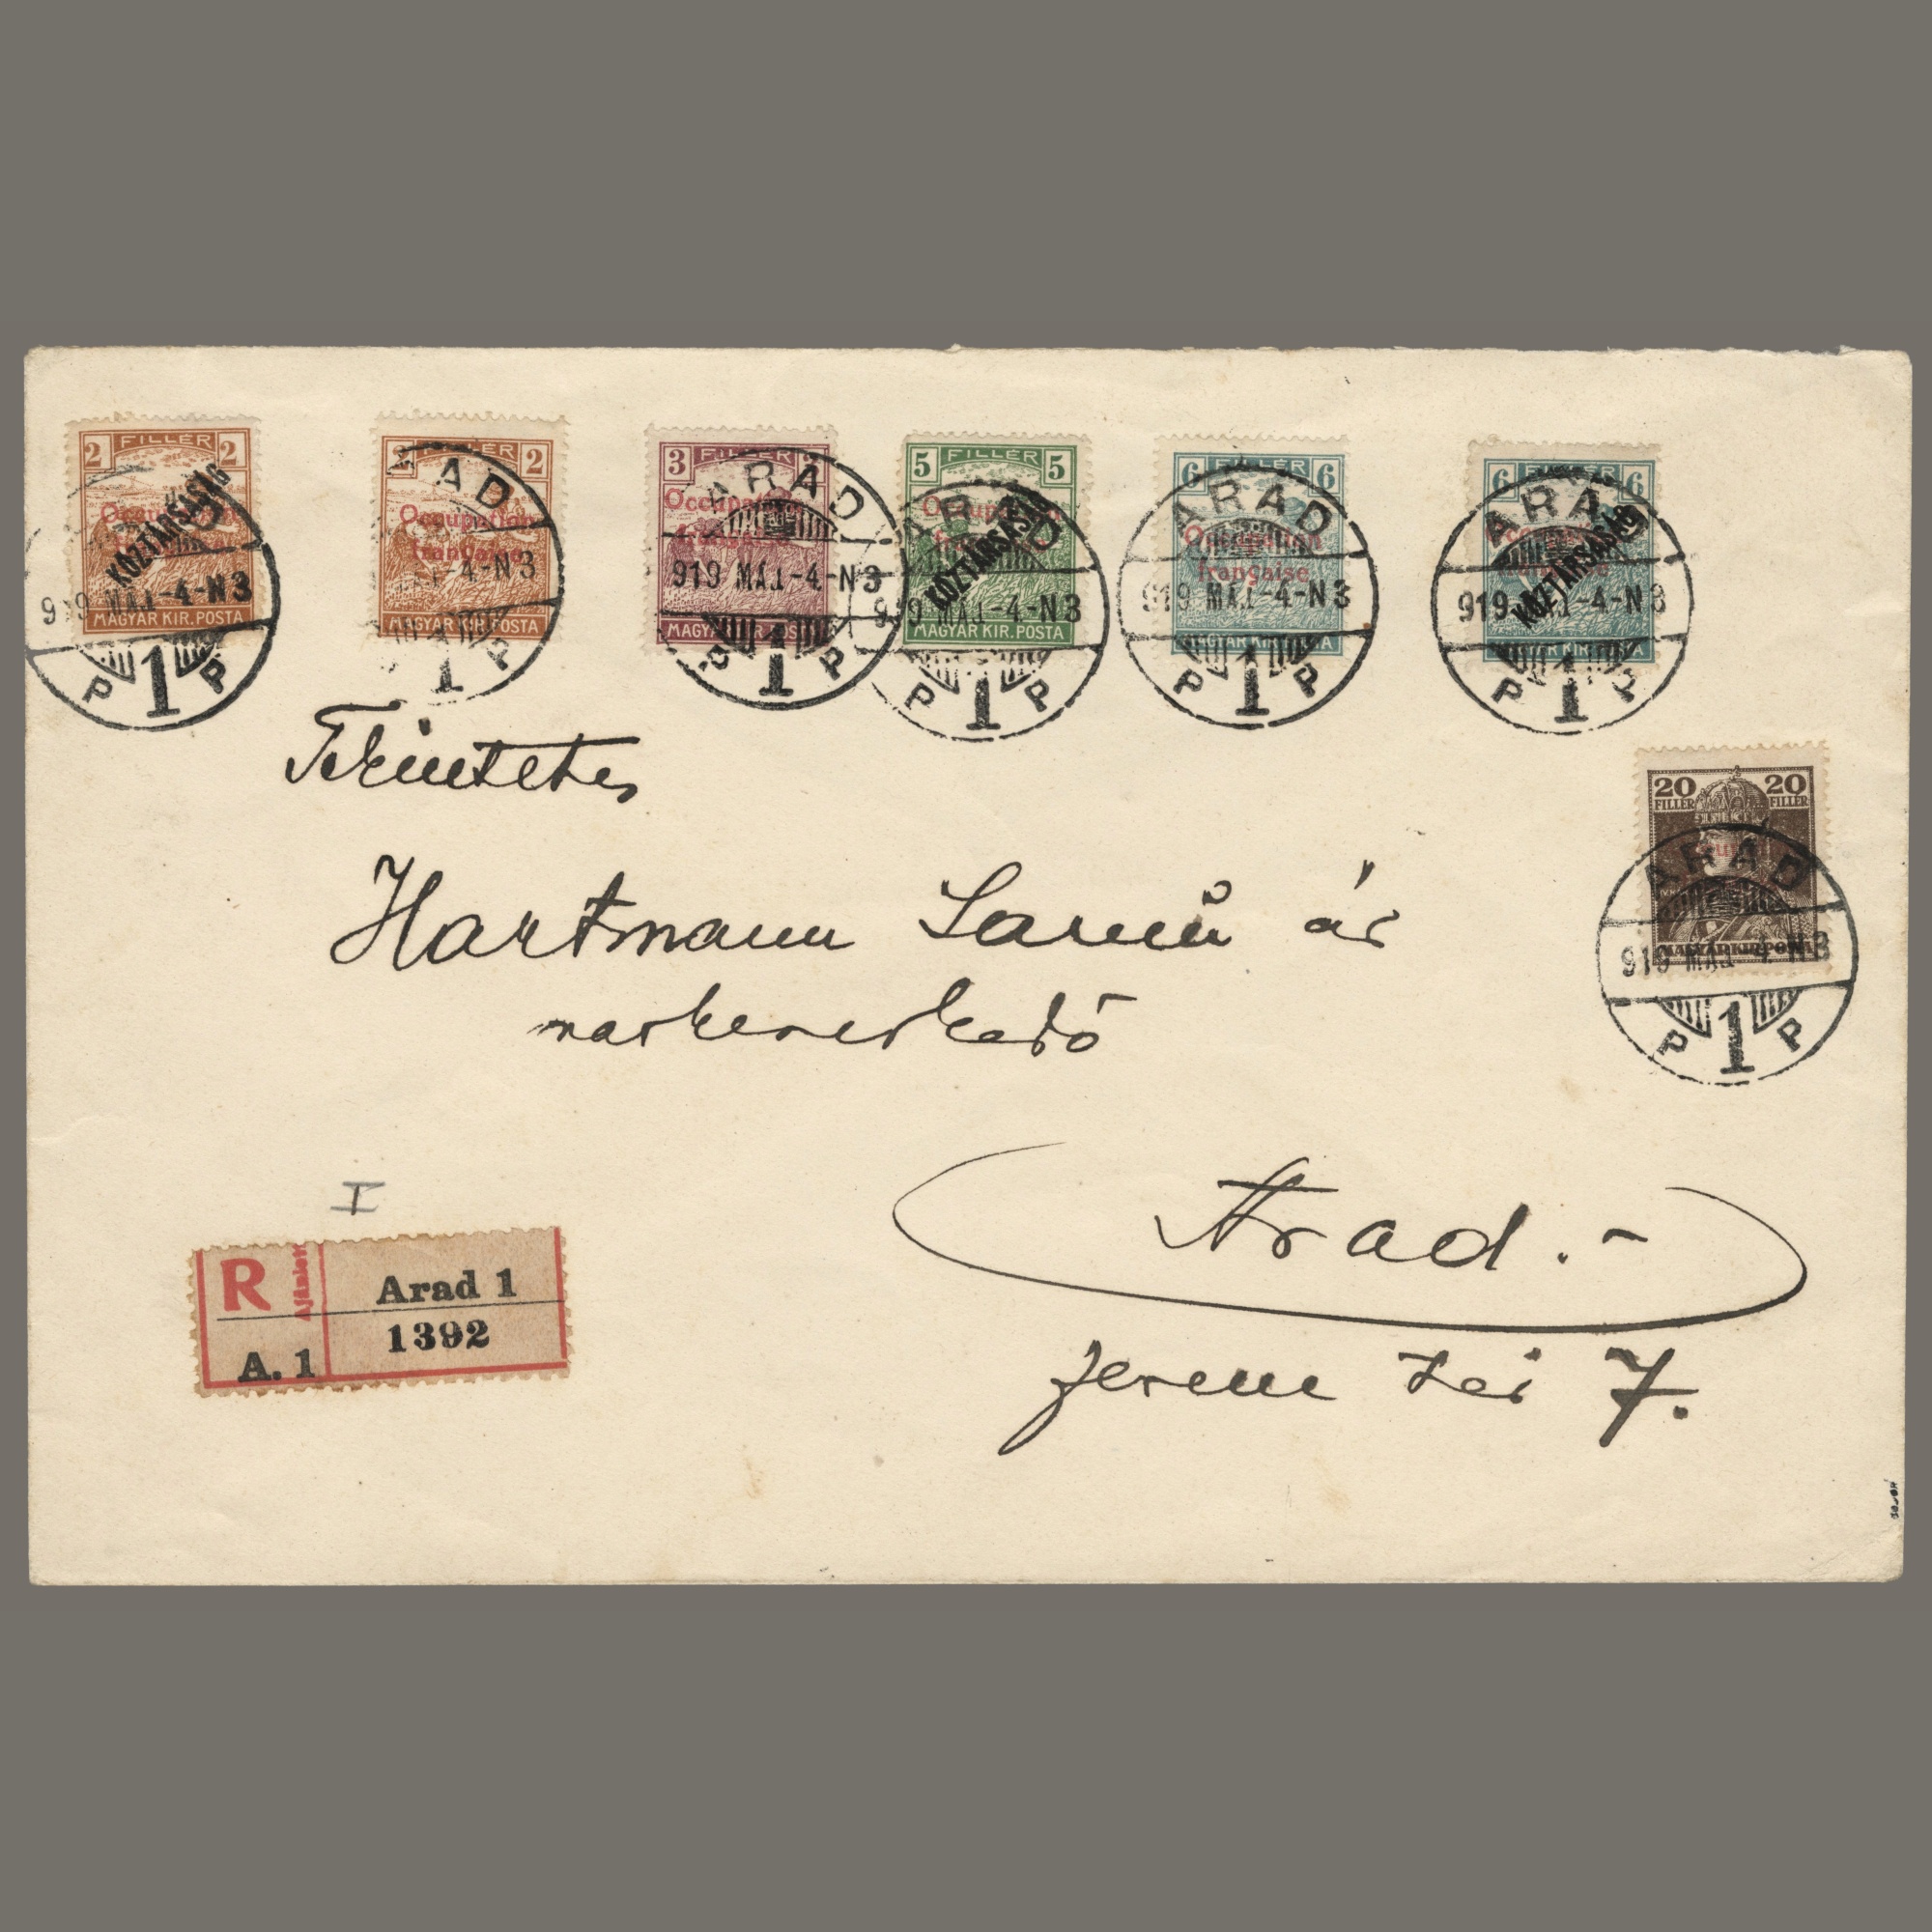 2 FILLÉR 2
Occupation
française
KÖZTÁRSASÁG
MAGYAR KIR. POSTA
919 MÁJ -4-N3
P 1 P
2 FILLÉR 2
Occupation
française
MAGYAR KIR. POSTA
ARAD
-4-N3
1 P
3 FILLÉR
Occupation
française
MAGYAR KIR. POSTA
ARAD
919 MÁJ -4-N3
P 1 P
5 FILLÉR 5
Occupation
française
KÖZTÁRSASÁG
MAGYAR KIR. POSTA
ARAD
N3
P 1 P
6 FILLÉR 6
Occupation
française
MAGYAR KIR. POSTA
ARAD
919 MÁJ -4-N3
P 1 P
6 FILLÉR 6
KÖZTÁRSASÁG
MAGYAR KIR. POSTA
ARAD
919 MÁJ -4-N3
P 1 P
20 20
FILLÉR FILLÉR
MAGYAR KIR. POSTA
ARAD
919 MÁJ -4-N3
P 1 P
Tekintetes
Hartmann úr
Arad.-
7.
I
R Arad 1
A. 1 1392